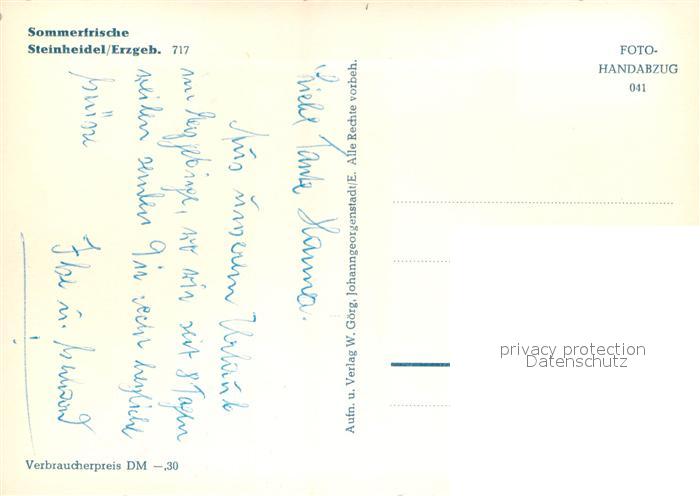 Sommerfrische
Steinheidel/Erzgeb. 717
FOTO-
HANDABZUG
041
Liebe Tante Hanna.
Aus unserem Urlaub
im Erzgebirge, wo wir seit 8 Tagen
weilen senden Dir recht herzliche
Grüsse
Ilse u.
Aufn. u. Verlag W. Görg, Johanngeorgenstadt/E. Alle Rechte vorbeh.
privacy protection
Datenschutz
Verbraucherpreis DM —,30